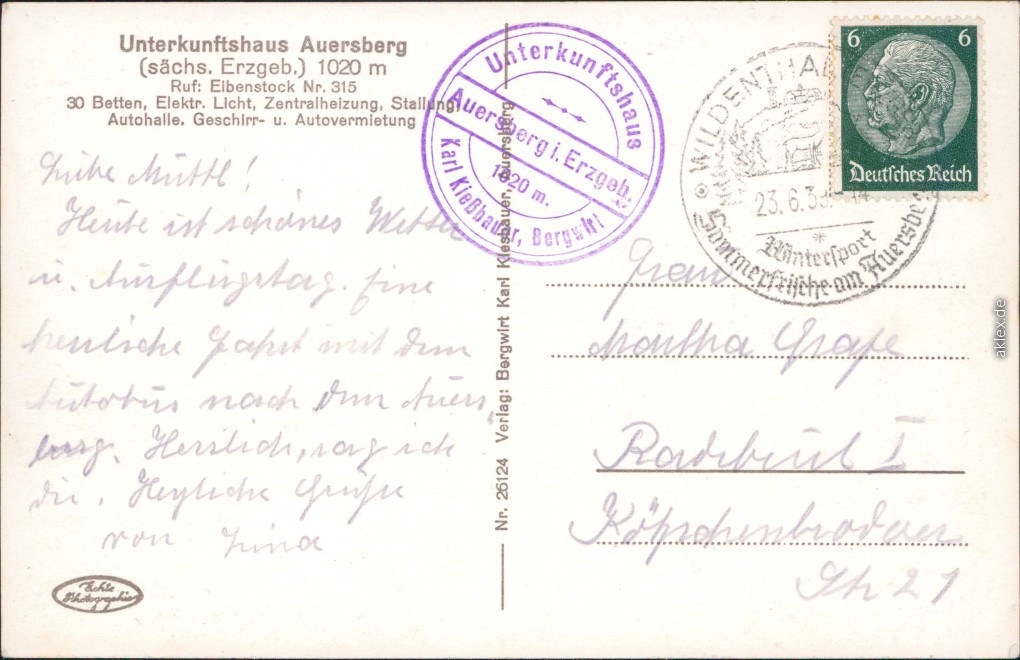 Unterkunftshaus Auersberg
(sächs. Erzgeb.) 1020 m
Ruf: Eibenstock Nr. 315
30 Betten, Elektr. Licht, Zentralheizung, Stallung,
Autohalle. Geschirr- u. Autovermietung
Liebe Muttl!
Heute ist schönes Wetter
u. Ausflugstag. Eine
herrliche Fahrt mit dem
Autobus nach dem Auers-
berg. Herrlich, sag ich
dir. Herzliche Grüße
von Lina
Echte
Photographie
Unterkunftshaus
Auersberg i. Erzgeb.
1020 m.
Karl Kießhauer, Bergwirt
Nr. 26124 Verlag: Bergwirt Karl Kiesbauer, Auersberg
WILDENTHAL
23. 6. 3
Wintersport
Sommerfrische am Auersberg
6 6
Deutsches Reich
Frau
Martha Grafe
Radebeul I
Kötzschenbrodaer
Str 21
aklex.de